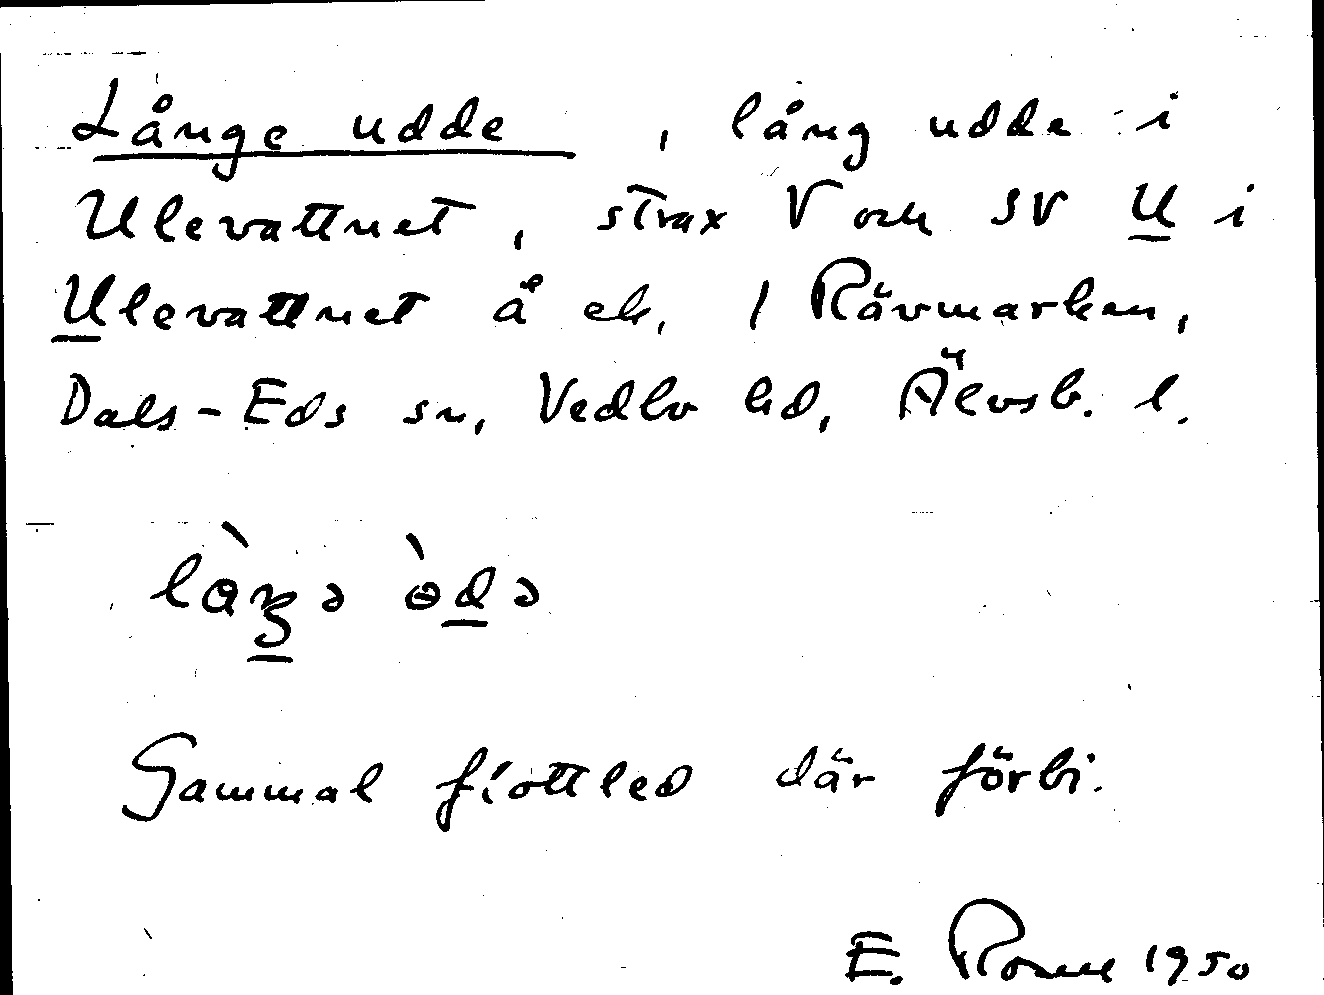 Långe udde , lång udde i
Ulevattnet, strax V och SV U i
Ulevattnet å ek, / Rävmarken,
Dals-Eds sn, Vedbo hd, Älvsb. l.
Gammal flottled där förbi.
E. 1950